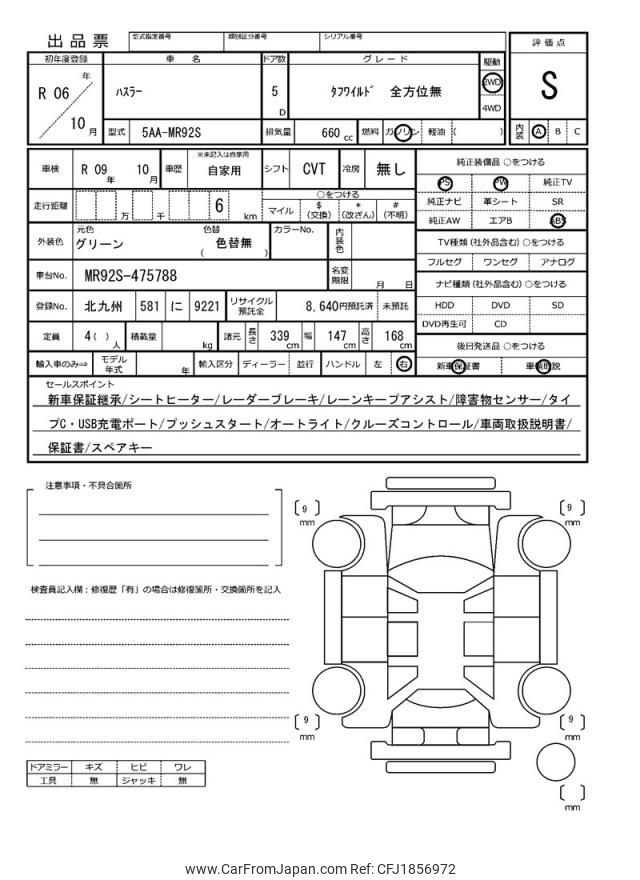 出品票
型式指定番号 類別区分番号 シリアル番号
評価点
S
初年度登録 車名 ドア数 グレード 駆動
R 06 年 10 月
ハスラー
5 D
タフワイルド 全方位無
2WD
4WD
型式 5AA-MR92S 排気量 660 cc 燃料 ガソリン 軽油 ( )
内装 A B C
車検 R 09 年 10 月 車歴 ※未記入は自家用 自家用 シフト CVT 冷房 無し
純正装備品 ○をつける
PS PW 純正TV
純正ナビ 革シート SR
純正AW エアB ABS
走行距離 万 千 6 km
○をつける
マイル $(交換) *(改ざん) #(不明)
外装色 元色 グリーン 色替 色替無 ( ) カラーNo. 内装色
TV種類 (社外品含む) ○をつける
フルセグ ワンセグ アナログ
車台No. MR92S-475788 名変期限 月 日
ナビ種類 (社外品含む) ○をつける
HDD DVD SD
DVD再生可 CD
登録No. 北九州 581 に 9221 リサイクル預託金 8,640円預託済 未預託
定員 4( ) 人 積載量 kg 諸元 長さ 339 cm 幅 147 cm 高さ 168 cm
後日発送品 ○をつける
新車保証書 車輌取説
輸入車のみ⇒ モデル年式 年 輸入区分 ディーラー 並行 ハンドル 左 右
セールスポイント
新車保証継承/シートヒーター/レーダーブレーキ/レーンキープアシスト/障害物センサー/タイ
プC・USB充電ポート/プッシュスタート/オートライト/クルーズコントロール/車両取扱説明書/
保証書/スペアキー
注意事項・不具合箇所
検査員記入欄：修復歴「有」の場合は修復箇所・交換箇所を記入
9 mm
9 mm
9 mm
9 mm
mm
ドアミラー キズ ヒビ ワレ
工具 無 ジャッキ 無
www.CarFromJapan.com Ref: CFJ1856972